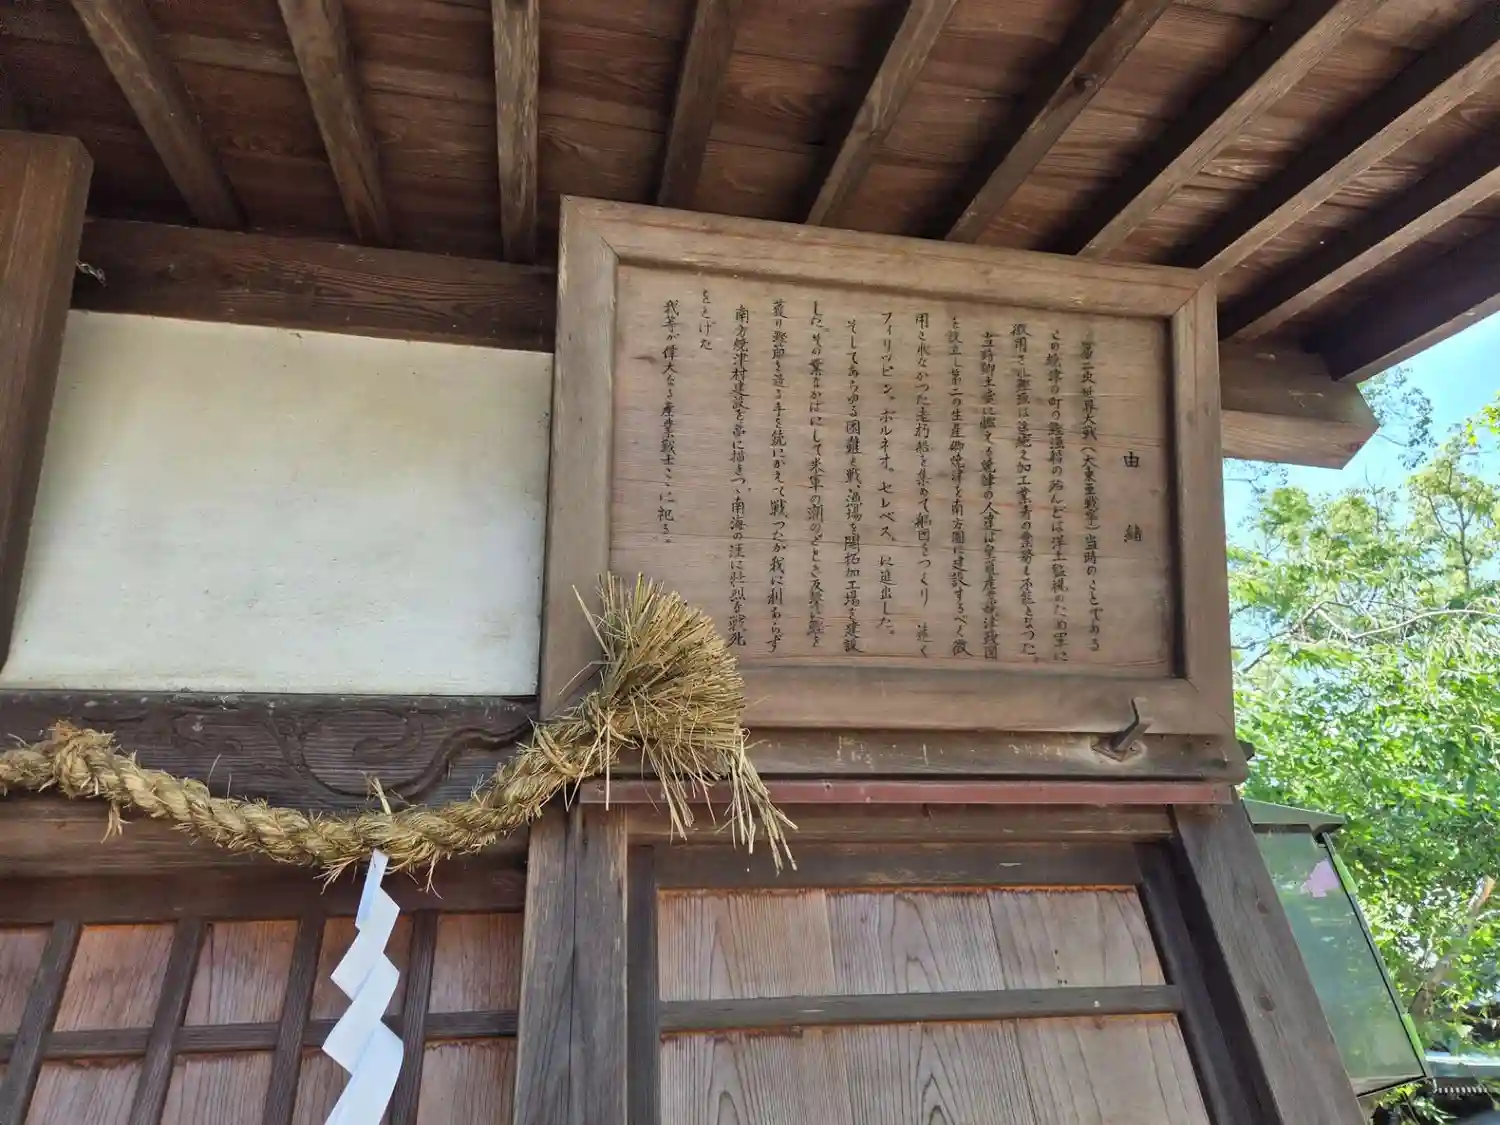 由緒
第二次世界大戦(大東亜戦争)当時のことである
この焼津の町の鰹漁船の殆んどは洋上監視のため軍に
徴用され鰹漁は途絶え加工業者の業務も不能となつた。
当時郷土愛に燃える焼津の人達は皇道産業焼津践団
を設立し第二の生産郷焼津を南方圏に建設するべく徴
用されなかつた老朽船を集めて船団をつくり 遠く
フィリッピン。ボルネオ。セレベス。に進出した。
そしてあらゆる困難と戦い漁場を開拓加工場を建設
した。その業なかばにして米軍の潮のごとき反撃に鰹を
獲り鰹節を造る手を銃にかえて戦つたが我に利あらず
南方焼津村建設を夢に描きつゝ南海の涯に壮烈な戦死
をとげた
我等が偉大なる産業戦士こゝに祀る。